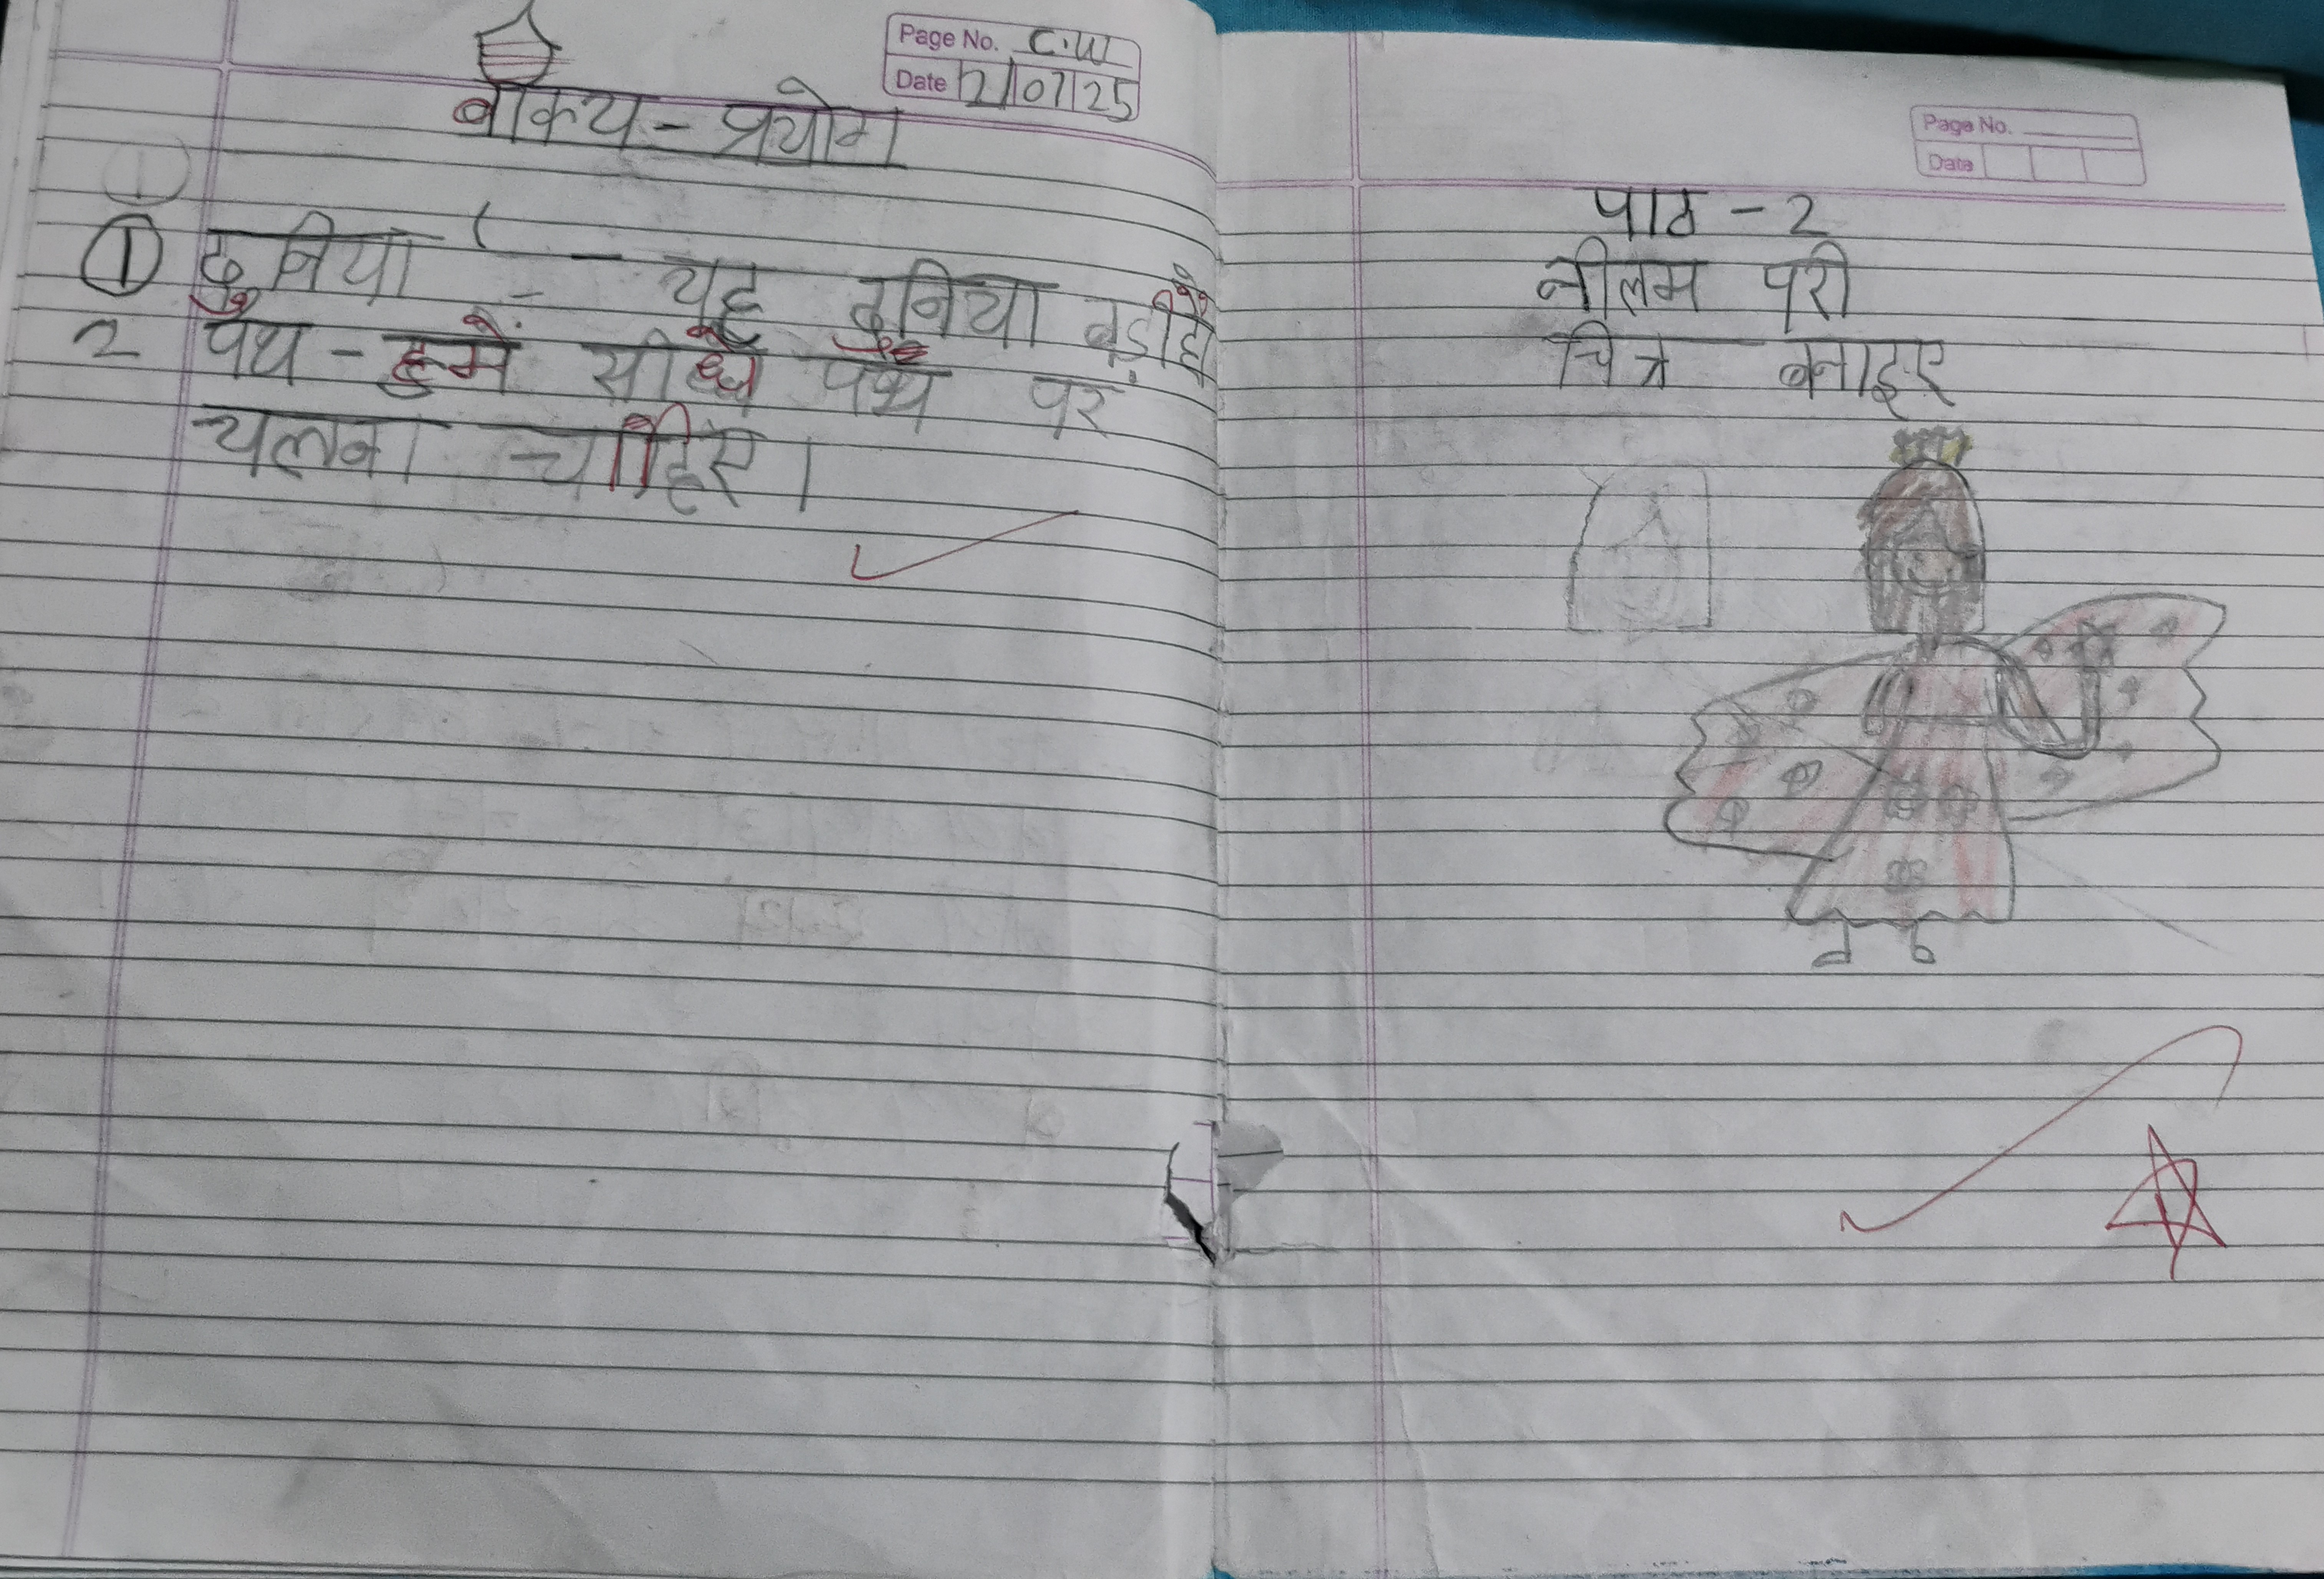 Page No. C.W
Date 2/07/25
वाकय - प्रयोग
1
① दुनिया - यह दुनिया बड़ी है
2 पथ - हमें सीधे पथ पर
चलना चाहिए।
Page No.
Date
पाठ - 2
नीलम परी
चित्र बनाइए